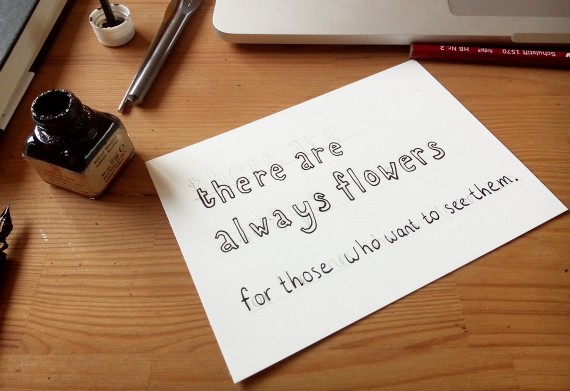 there are
always flowers
for those who want to see them.
Schulstift 1570 HB Nr. 2